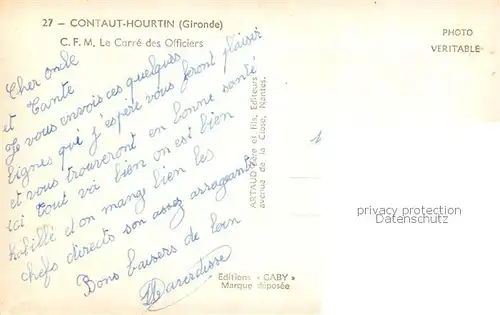 27 — CONTAUT-HOURTIN (Gironde)
C. F. M. Le Carré des Officiers
PHOTO
VERITABLE
Cher oncle
et Tante
Je vous envois ces quelques
lignes qui j'espère vous feront plaisir
et vous trouveront en bonne santé
ici tout va bien on est bien
habillé et on mange bien les
chefs directs son assez arrageants
Bons baisers de loin
ARTAUD Père et fils, Editeurs
avenue de la Close, Nantes.
Editions « GABY »
Marque déposée
privacy protection
Datenschutz